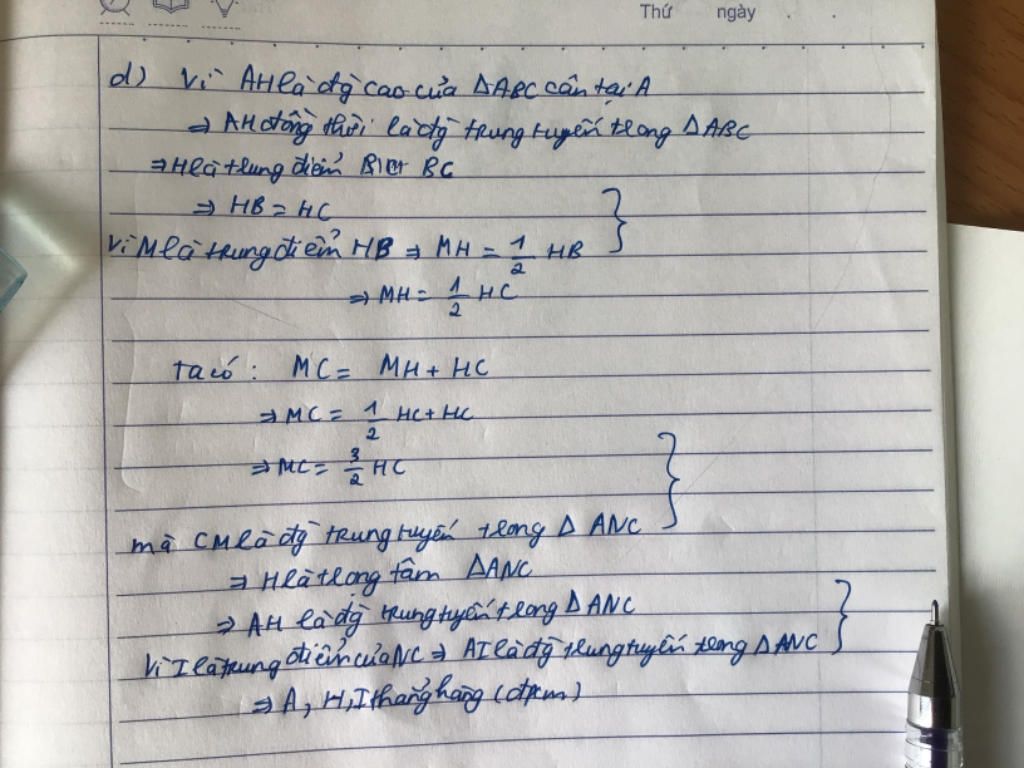 Thứ ngày . .
d) Vì AH là đg cao của ΔABC cân tại A
⇒ AH đồng thời là đg trung tuyến trong ΔABC
⇒ H là trung điểm BC
⇒ HB = HC
Vì M là trung điểm HB ⇒ MH = 1/2 HB
⇒ MH = 1/2 HC
Ta có : MC = MH + HC
⇒ MC = 1/2 HC + HC
⇒ MC = 3/2 HC
mà CM là đg trung tuyến trong Δ ANC
⇒ H là trọng tâm ΔANC
⇒ AH là đg trung tuyến trong ΔANC
Vì I là trung điểm của NC ⇒ AI là đg trung tuyến trong ΔANC
⇒ A, H, I thẳng hàng (đpcm)